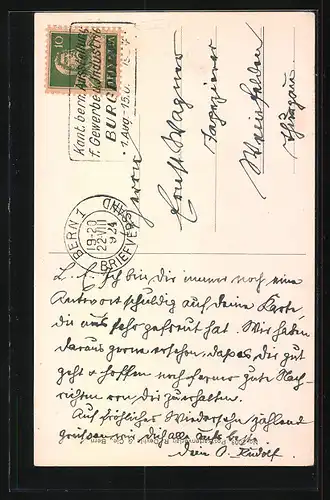 10
Kant. bern. Ausstellung
f. Gewerbe u. Industrie
BURGDORF
1. Aug.-15.
BERN 1
19-20
22.VIII
924
BRIEFVERSAND
Herrn
Ernst Wagner
Weinfelden
Thurgau.
L. E. Ich bin dir immer noch eine
Antwort schuldig auf deine Karte
die uns sehr gefreut hat. Wir haben
daraus gerne ersehen, dass es dir gut
geht & hoffen noch ferner gute Nach-
richten von dir zu erhalten.
Auf fröhliches Wiedersehn zählend
grüssen wir dich alle
dein O. Rudolf